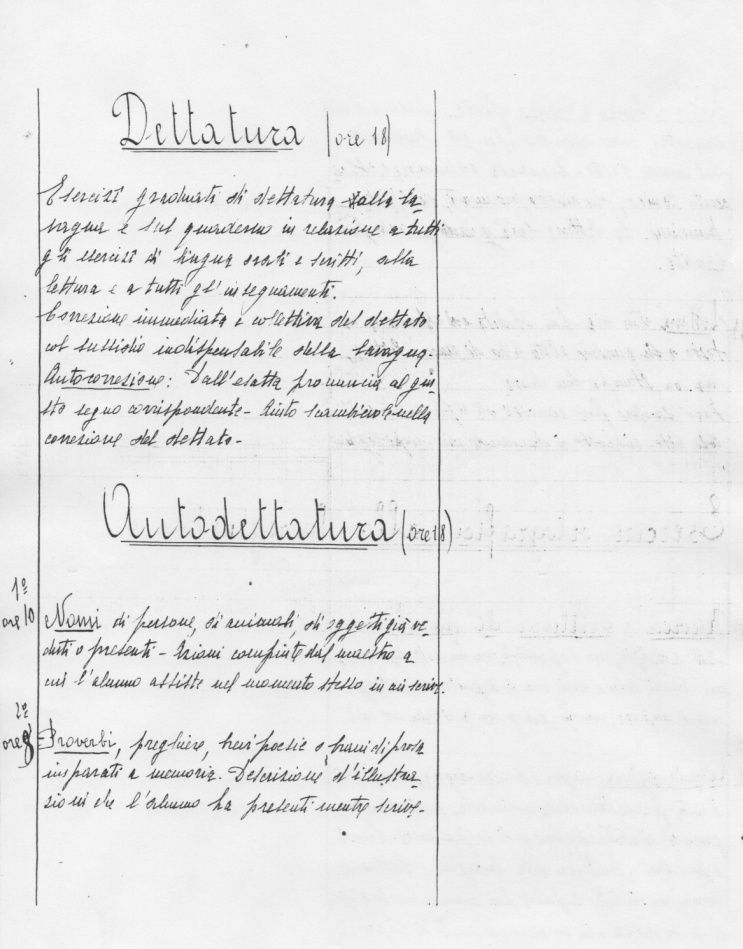 Dettatura (ore 18)
Esercizî graduati di dettatura alla la-
vagna e sul quaderno in relazione a tutti
gli esercizî di lingua orali e scritti, alla
lettura e a tutti gl'insegnamenti.
Correzione immediata e collettiva del dettato
col sussidio indispensabile della lavagna.
Autocorrezione: Dall'esatta pronuncia al giu-
sto segno corrispondente - Aiuto scambievole nella
correzione del dettato -
Autodettatura (ore 18)
1º
ore 10
Nomi di persone, di animali, di oggetti già ve-
duti o presenti - Azioni compiute dal maestro a
cui l'alunno assiste nel momento stesso in cui scrive.
2º
ore 8
Proverbi, preghiere, brevi poesie o brani di prosa
imparati a memoria. Descrizione d'illustra-
zioni che l'alunno ha presenti mentre scrive -